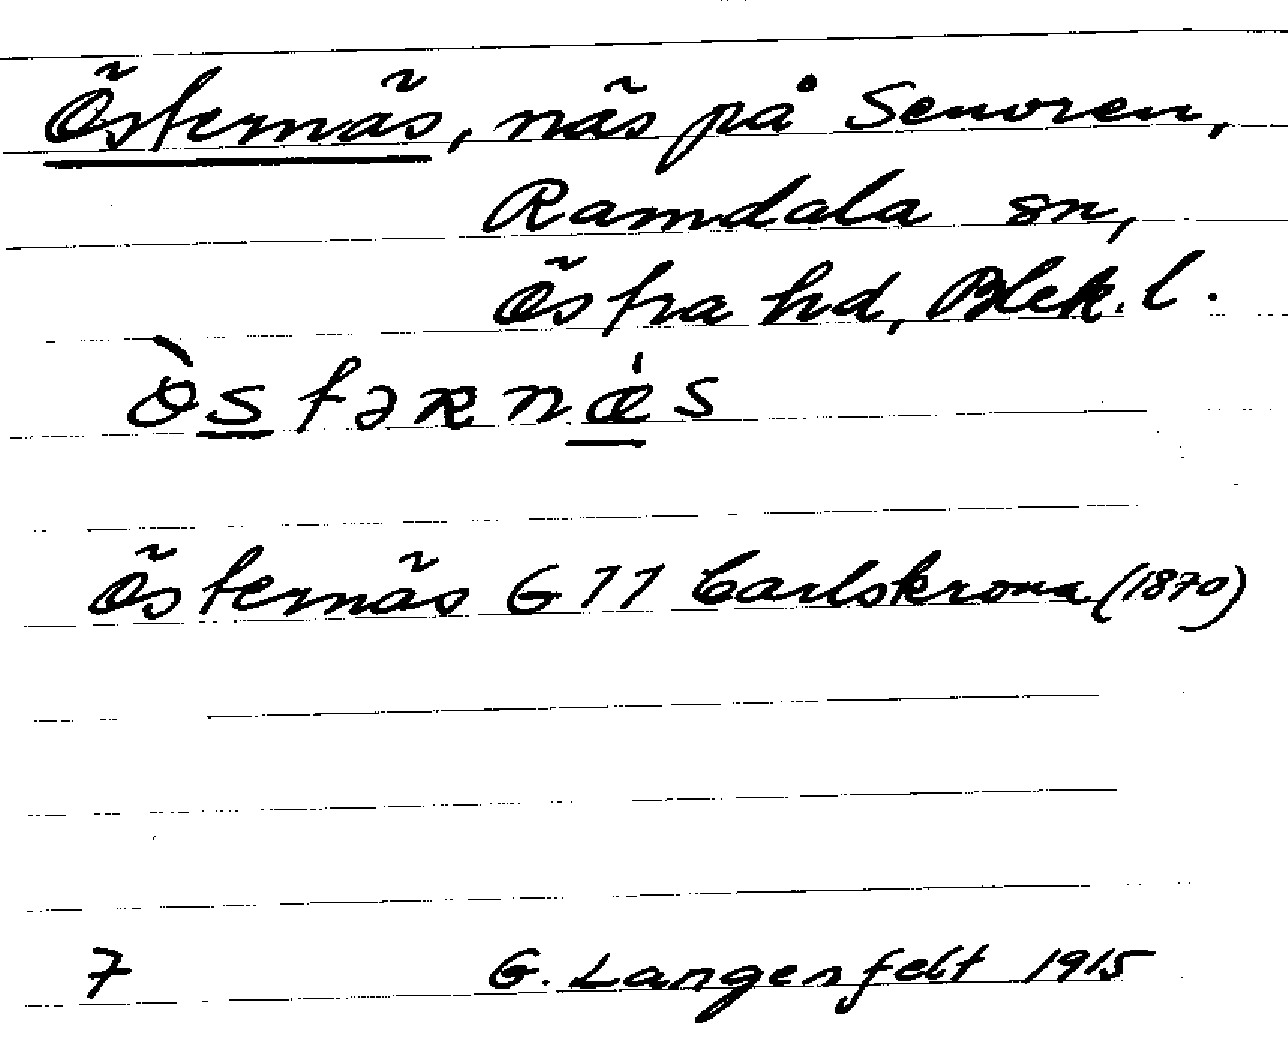 Östernäs, näs på Senoren,
Ramdala sn,
Östra hd, Blek. l.
Òstərnǽs
Östernäs G 77 Carlskrona (1870)
7 G. Langenfelt 1915